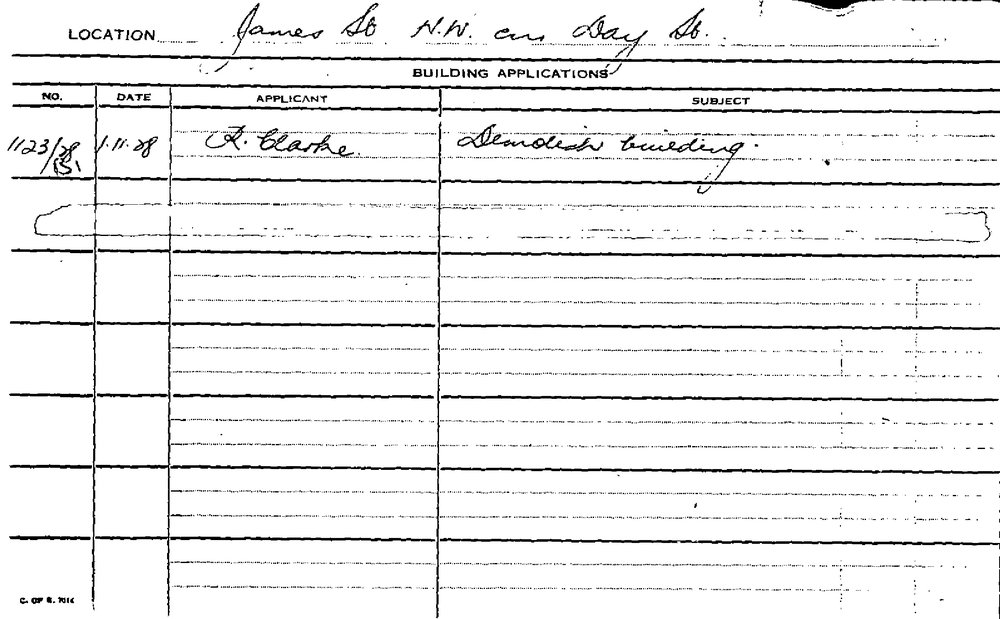 LOCATION James St N.W. cnr Day St.
BUILDING APPLICATIONS
NO. DATE APPLICANT SUBJECT
1123/28 1.11.28 R. Clarke. Demolish building.
C. OF S. 7014